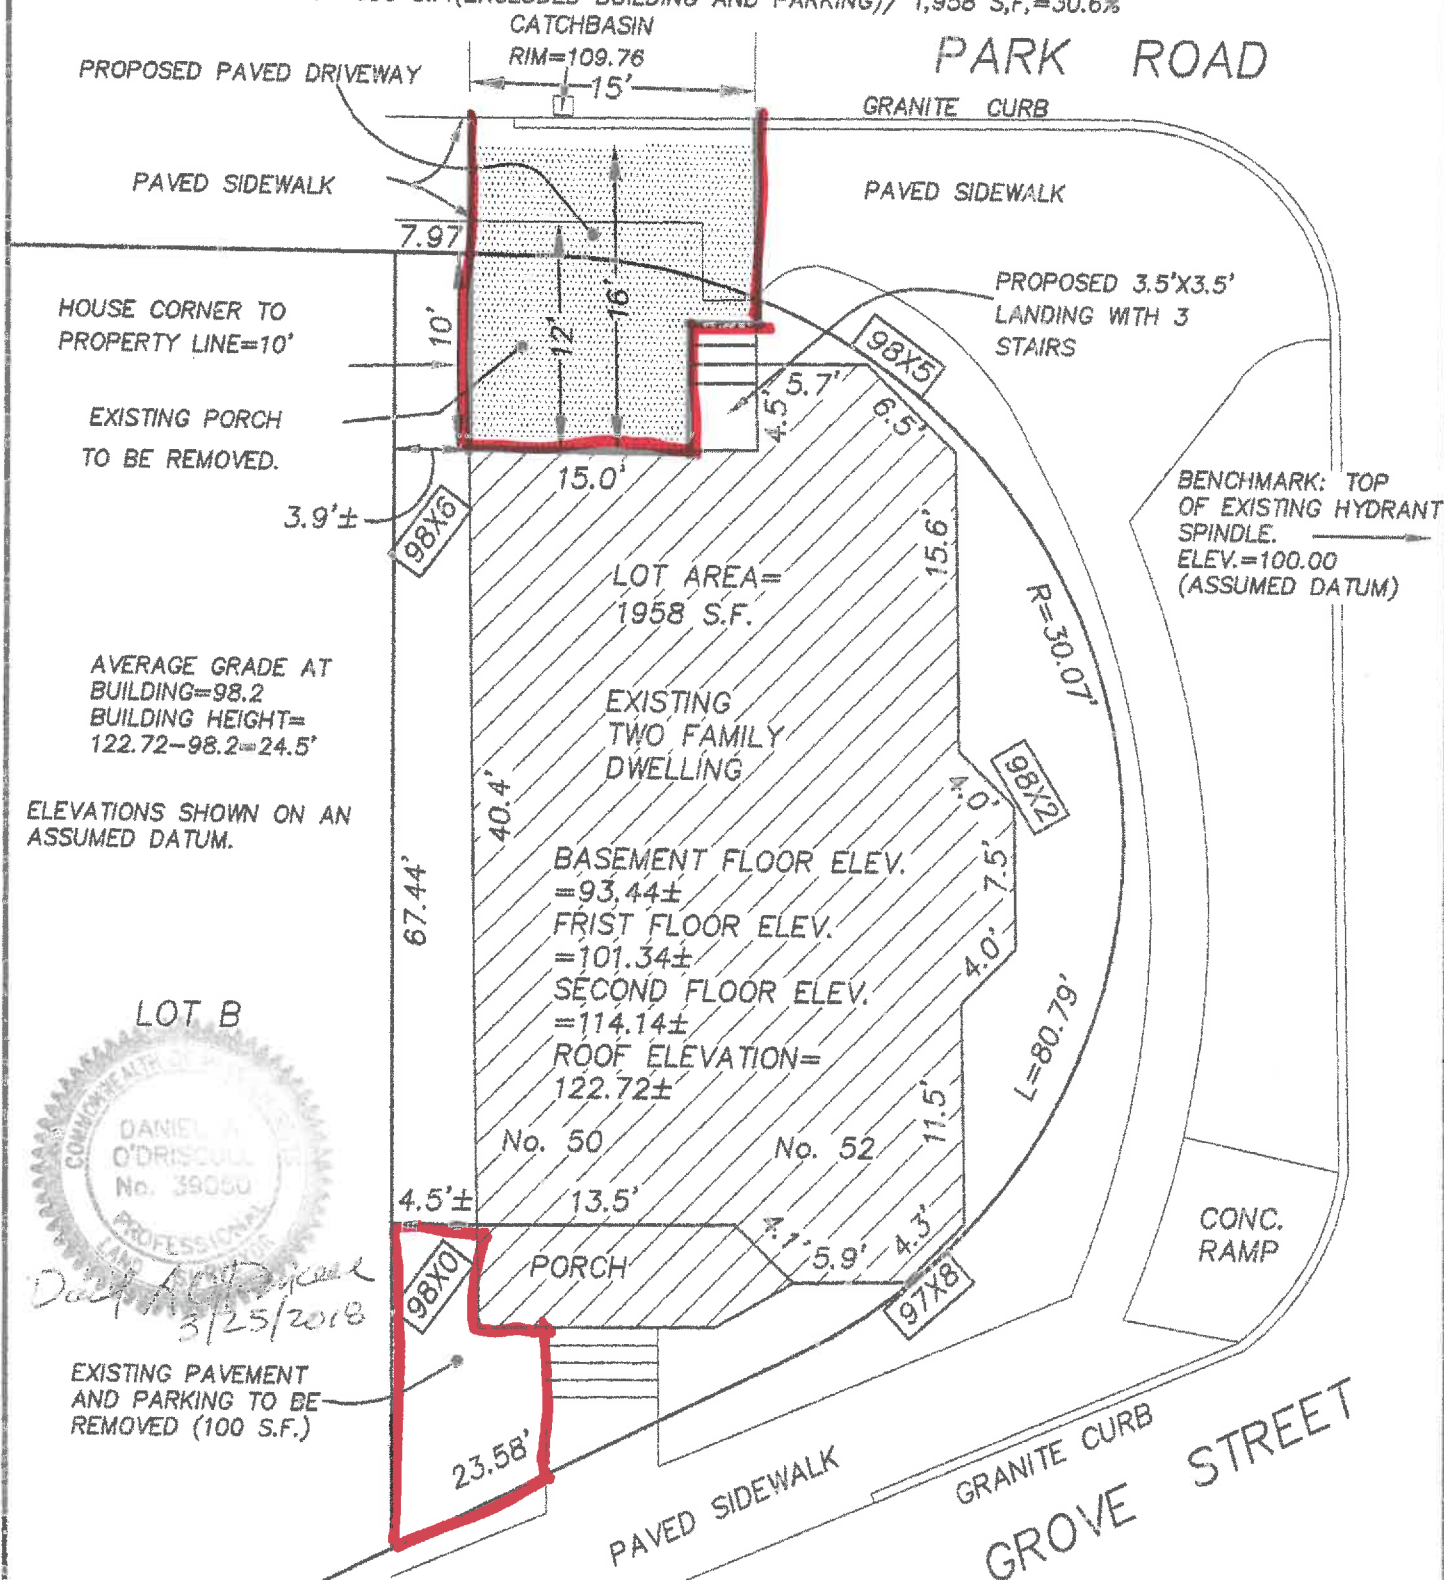 (EXCLUDED BUILDING AND PARKING)/ 1,958 S,F,=30.6%
CATCHBASIN
RIM=109.76
15'
PARK ROAD
PROPOSED PAVED DRIVEWAY
GRANITE CURB
PAVED SIDEWALK
PAVED SIDEWALK
7.97
HOUSE CORNER TO
PROPERTY LINE=10'
10'
12'
16'
PROPOSED 3.5'X3.5'
LANDING WITH 3
STAIRS
98X5
EXISTING PORCH
TO BE REMOVED.
5.7'
4.5'
6.5'
15.0'
3.9'±
98X6
BENCHMARK: TOP
OF EXISTING HYDRANT
SPINDLE.
ELEV.=100.00
(ASSUMED DATUM)
15.6'
LOT AREA=
1958 S.F.
R=30.07'
AVERAGE GRADE AT
BUILDING=98.2
BUILDING HEIGHT=
122.72-98.2=24.5'
EXISTING
TWO FAMILY
DWELLING
98X2
4.0'
40.4'
ELEVATIONS SHOWN ON AN
ASSUMED DATUM.
7.5'
67.44'
BASEMENT FLOOR ELEV.
=93.44±
FRIST FLOOR ELEV.
=101.34±
SECOND FLOOR ELEV.
=114.14±
ROOF ELEVATION=
122.72±
4.0'
L=80.79'
LOT B
COMMONWEALTH OF
DANIEL
O'DRISCOLL
No. 39050
PROFESSIONAL
LAND
11.5'
No. 50
No. 52
4.5'±
13.5'
4.1'
5.9'
4.3'
CONC.
RAMP
98X0
PORCH
97X8
3/25/2018
EXISTING PAVEMENT
AND PARKING TO BE
REMOVED (100 S.F.)
23.58'
PAVED SIDEWALK
GRANITE CURB
GROVE STREET